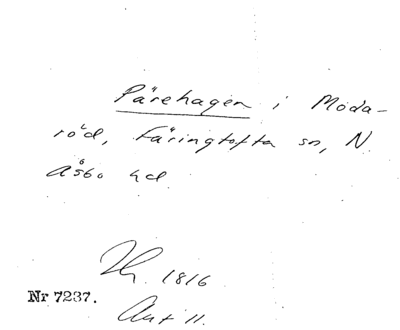 Pärehagen i Moda-
röd, Färingtofta sn, N
Åsbo hd
1816
Nr 7237.
Akt 11.